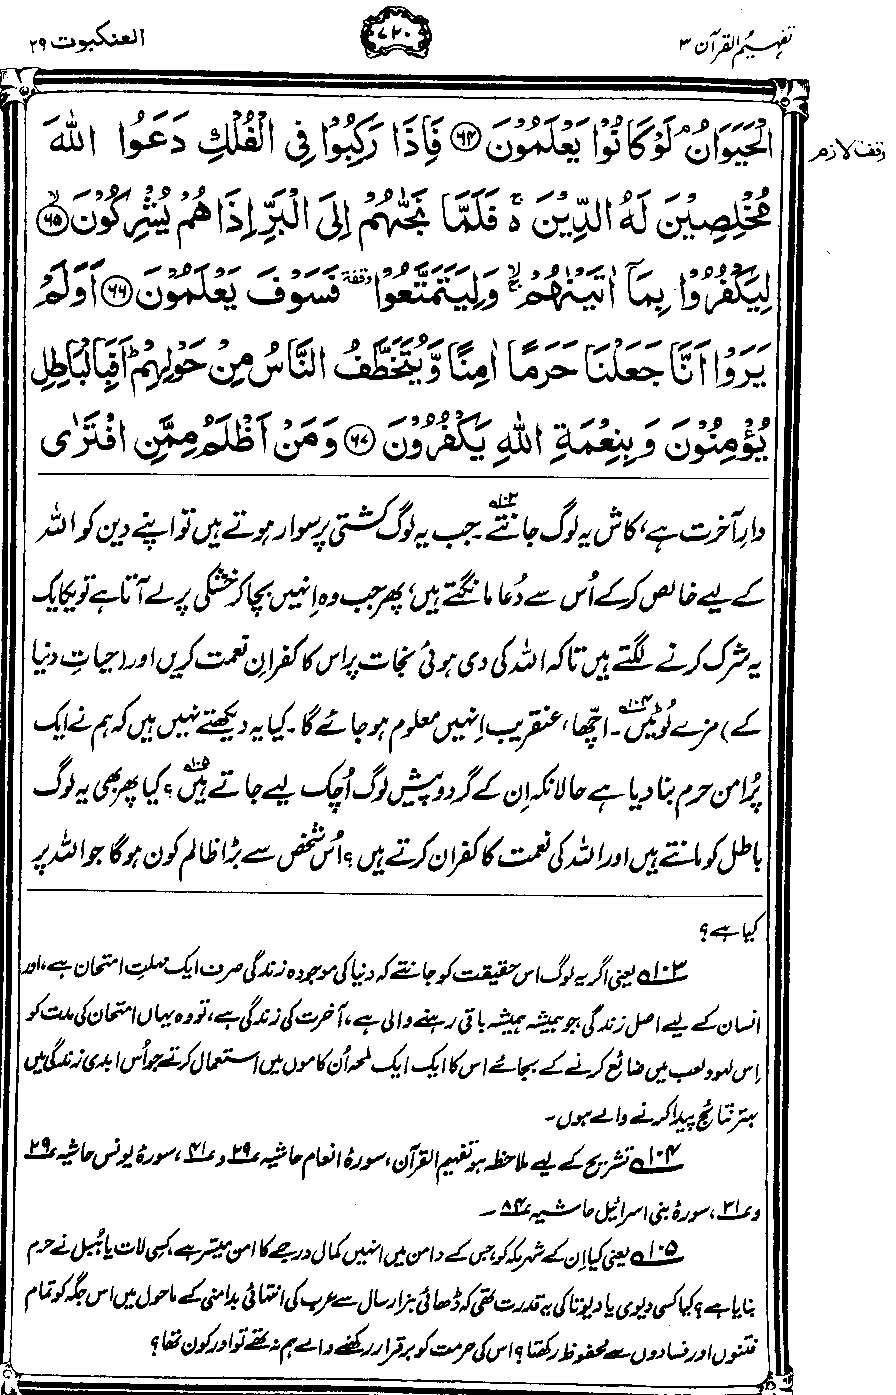 تفہیم القرآن ۳
۷۲۰
العنکبوت ۲۹
وقف لازم
الْحَيَوَانُ ۘ لَوْ كَانُوْا يَعْلَمُوْنَ ﴿۶۴﴾ فَاِذَا رَكِبُوْا فِى الْفُلْكِ دَعَوُا اللّٰهَ
مُخْلِصِيْنَ لَهُ الدِّيْنَ ۚ فَلَمَّا نَجّٰىهُمْ اِلَى الْبَرِّ اِذَا هُمْ يُشْرِكُوْنَ ﴿۶۵﴾ ۙ
لِيَكْفُرُوْا بِمَاۤ اٰتَيْنٰهُمْ ۙ وَلِيَتَمَتَّعُوْا وقفة فَسَوْفَ يَعْلَمُوْنَ ﴿۶۶﴾ اَوَلَمْ
يَرَوْا اَنَّا جَعَلْنَا حَرَمًا اٰمِنًا وَّيُتَخَطَّفُ النَّاسُ مِنْ حَوْلِهِمْ ؕ اَفَبِالْبَاطِلِ
يُؤْمِنُوْنَ وَبِنِعْمَةِ اللّٰهِ يَكْفُرُوْنَ ﴿۶۷﴾ وَمَنْ اَظْلَمُ مِمَّنِ افْتَرٰى
دارِ آخرت ہے، کاش یہ لوگ جانتے۱۰۳۔ جب یہ لوگ کشتی پر سوار ہوتے ہیں تو اپنے دین کو اللہ
کے لیے خالص کر کے اُس سے دُعا مانگتے ہیں، پھر جب وہ اِنہیں بچا کر خشکی پر لے آتا ہے تو یکایک
یہ شرک کرنے لگتے ہیں تاکہ اللہ کی دی ہوئی نجات پر اس کا کفرانِ نعمت کریں اور (حیاتِ دنیا
کے) مزے لُوٹیں۱۰۴۔ اچھا، عنقریب اِنہیں معلوم ہو جائے گا۔ کیا یہ دیکھتے نہیں ہیں کہ ہم نے ایک
پُرامن حرم بنا دیا ہے حالانکہ اِن کے گردوپیش لوگ اُچک لیے جاتے ہیں۱۰۵؟ کیا پھر بھی یہ لوگ
باطل کو مانتے ہیں اور اللہ کی نعمت کا کفران کرتے ہیں؟ اُس شخص سے بڑا ظالم کون ہوگا جو اللہ پر
کیا ہے؟
۱۰۳ یعنی اگر یہ لوگ اس حقیقت کو جانتے کہ دنیا کی موجودہ زندگی صرف ایک مہلتِ امتحان ہے، اور
انسان کے لیے اصل زندگی جو ہمیشہ ہمیشہ باقی رہنے والی ہے، آخرت کی زندگی ہے، تو وہ یہاں امتحان کی مدت کو
اِس لہو و لعب میں ضائع کرنے کے بجائے اس کا ایک ایک لمحہ اُن کاموں میں استعمال کرتے جو اُس ابدی زندگی میں
بہتر نتائج پیدا کرنے والے ہوں۔
۱۰۴ تشریح کے لیے ملاحظہ ہو تفہیم القرآن، سورۂ انعام حاشیہ ۲۹ و ۴۱، سورۂ یونس حاشیہ ۲۹
و ۳۱، سورۂ بنی اسرائیل حاشیہ ۸۴۔
۱۰۵ یعنی کیا اِن کے شہر مکہ کو، جس کے دامن میں انہیں کمال درجے کا امن میسر ہے، کسی لات یا ہُبل نے حرم
بنایا ہے؟ کیا کسی دیوی یا دیوتا کی یہ قدرت تھی کہ ڈھائی ہزار سال سے عرب کی انتہائی بدامنی کے ماحول میں اس جگہ کو تمام
فتنوں اور فسادوں سے محفوظ رکھتا؟ اس کی حرمت کو برقرار رکھنے والے ہم نہ تھے تو اور کون تھا؟